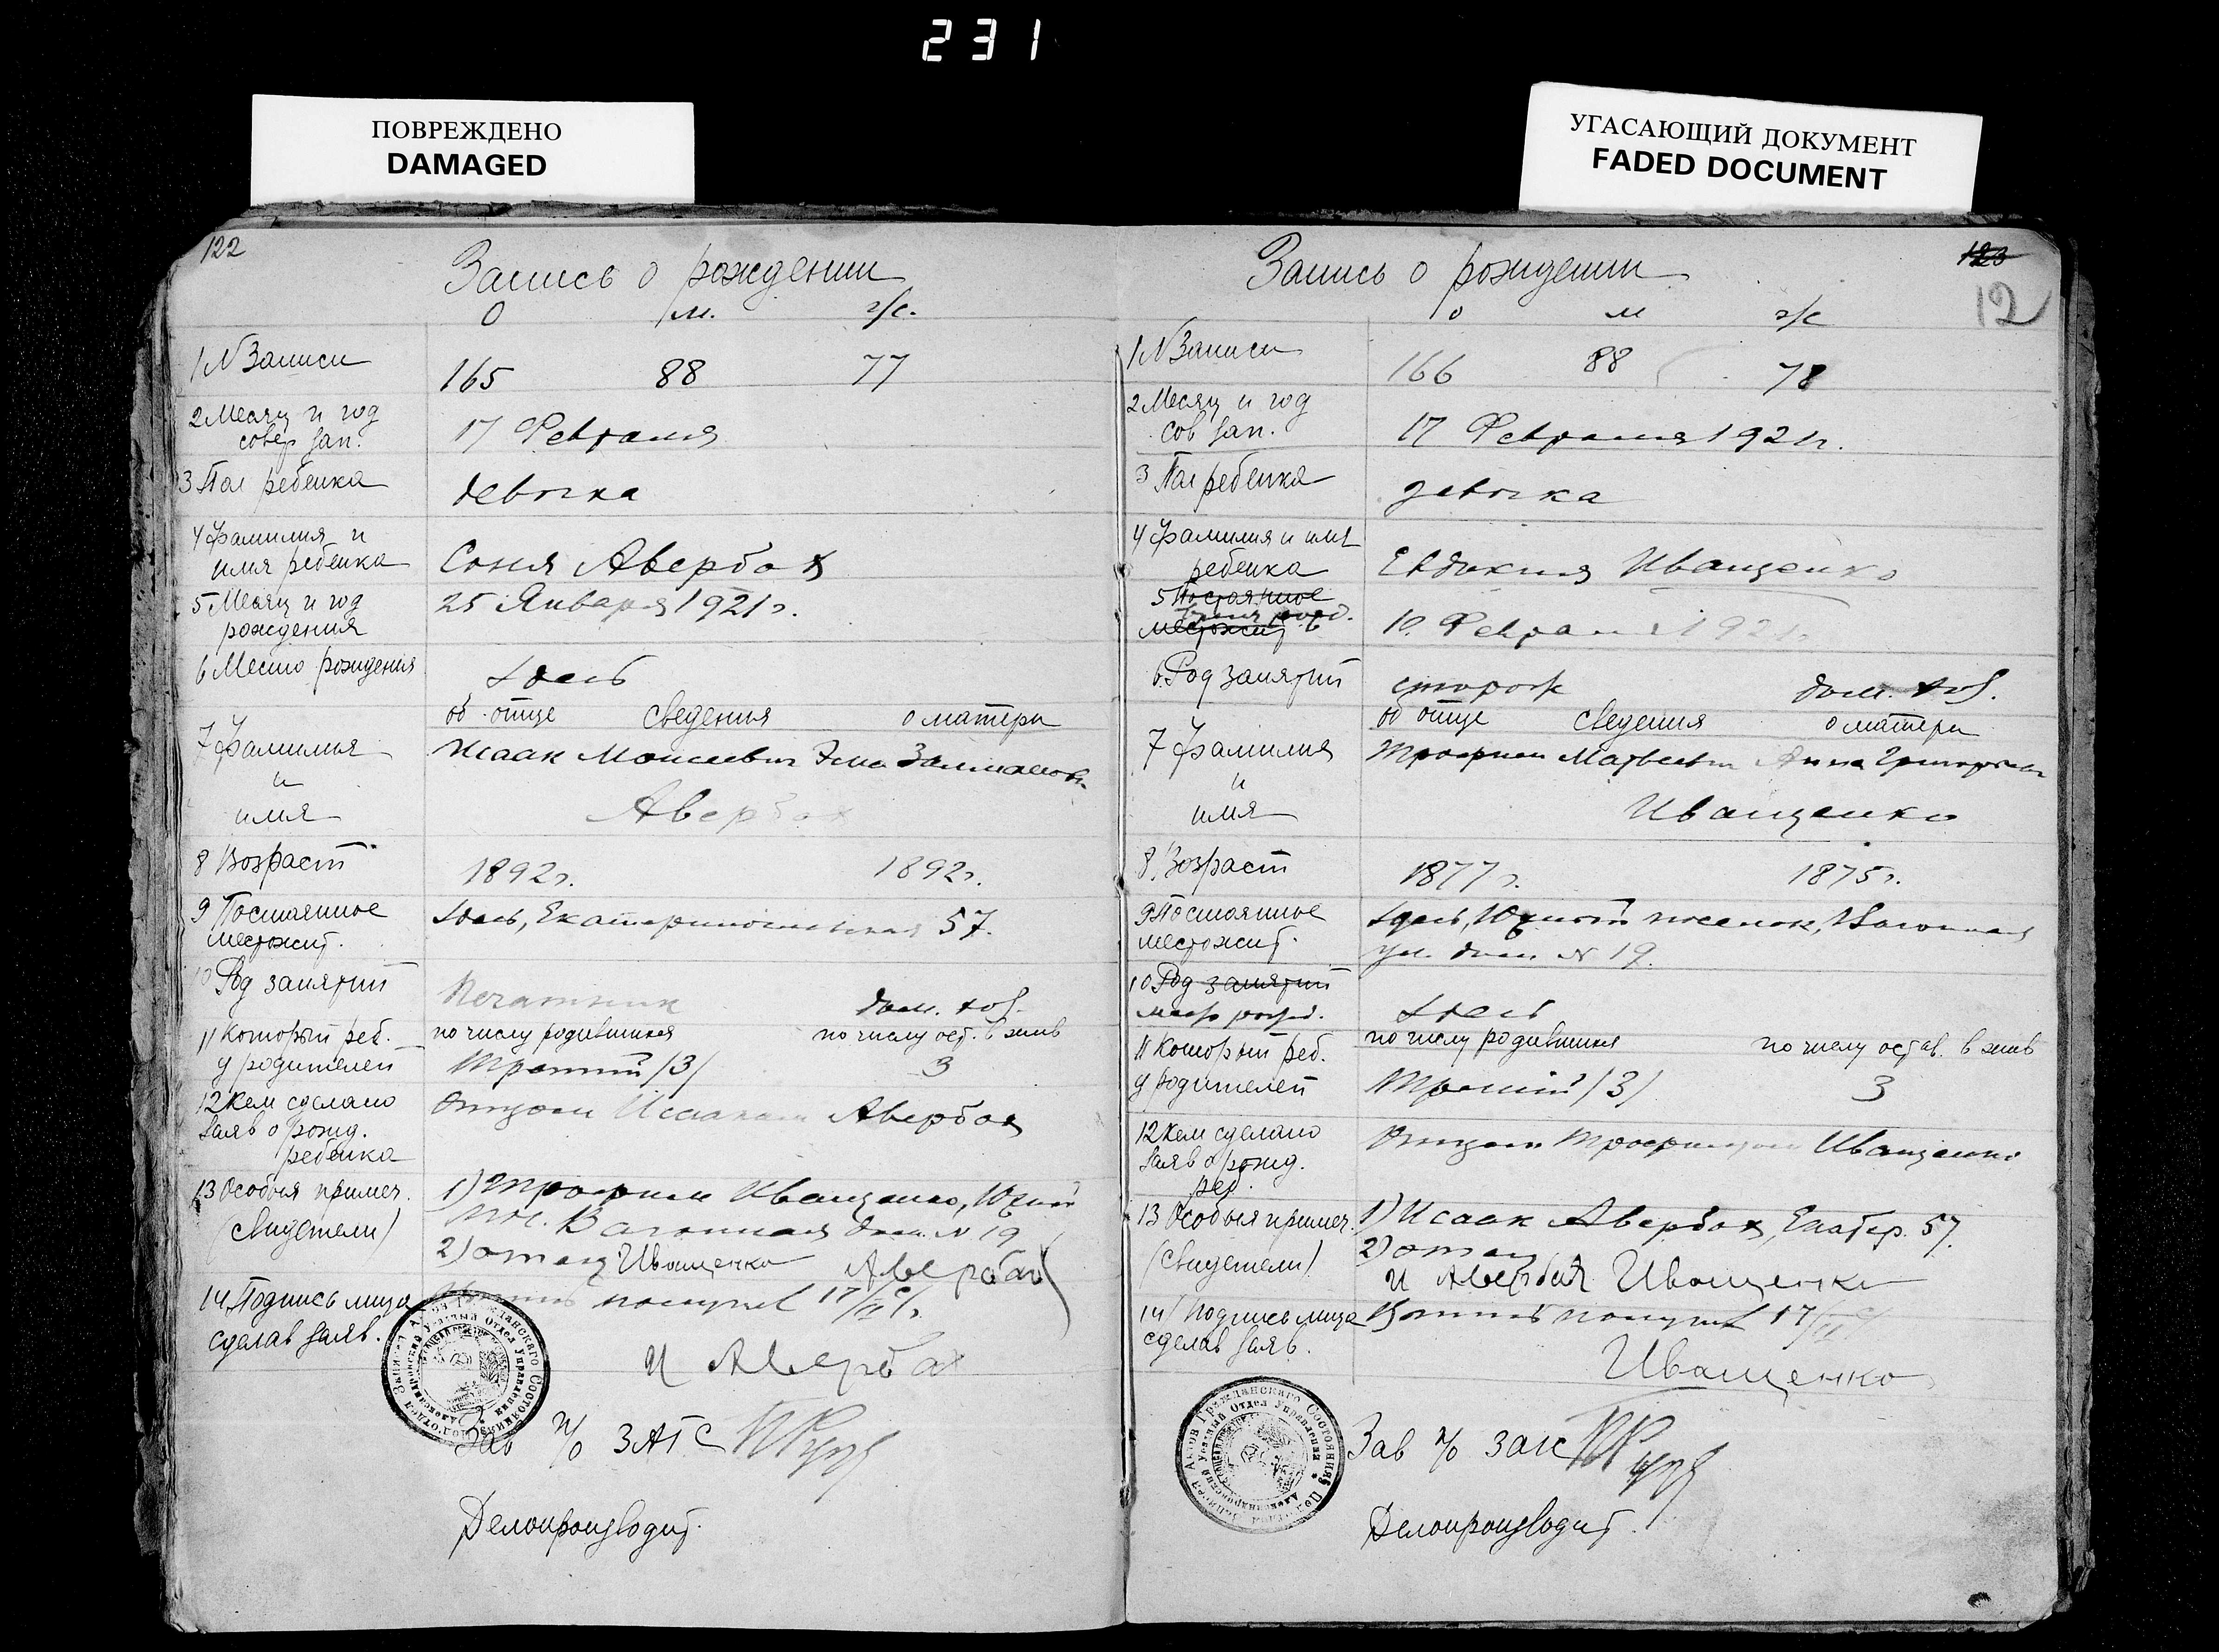 231
ПОВРЕЖДЕНО
DAMAGED
УГАСАЮЩИЙ ДОКУМЕНТ
FADED DOCUMENT
122
Запись о рождении
о м. г/с.
1 N Записи 165 88 77
2 Месяц и год
совер зап. 17 Февраля
3 Пол ребенка девочка
4 Фамилия и
имя ребенка Соня Авербах
5 Месяц и год 25 Января 1921 г.
рождения
6 Место рождения здесь
об отце сведения о матери
7 Фамилия Исаак Моисеевич Залманов.
и
имя Авербах
8 Возраст 1892 г. 1892 г.
9 Постоянное Здесь, 57.
местожит.
10 Род занятий Печатник дом. хоз.
11 Который реб. по числу родившихся по числу ост. в жив
у родителей Третий /3/ 3
12 Кем сделано Отцом Исааком Авербах
заяв о рожд.
ребенка
13 Особыя примеч. 1) Трофим Иващенко, Южный
(свидетели) пос. Вагонная дом N 19
2) отец Иващенко Авербах
14 Подпись лица получил 17/II
сделав заяв.
И Авербах
Зав п/о ЗАГС
Делопроизводит.
123
12
Запись о рождении
о м г/с
1 N Записи 166 88 78
2 Месяц и год
сов зап. 17 Февраля 1921 г.
3 Пол ребенка девочка
4 Фамилия и имя
ребенка Евдокия Иващенко
5 Постоянное
местожит
рожд. 10 Февраля 1921 г.
6 Род занятий сторож дом. хоз.
об отце сведения о матери
7 Фамилия Трофим Матвеевич Анна Григорьевн
и
имя Иващенко
8. Возраст 1877 г. 1875 г.
9 Постоянное Здесь, Южный поселок, Вагонная
местожит. ул. дом N 19.
10 Род занятий
место рожд. Здесь
11 Который реб. по числу родившихся по числу остав. в жив
у родителей Третий /3/ 3
12 Кем сделано Отцом Трофимом Иващенко
заяв о рожд.
реб.
13 Особыя примеч. 1) Исаак Авербах, Екатер. 57.
(свидетели) 2) отец
И Авербах Иващенко
14) Подпись лица получил 17/II
сделав заяв.
Иващенко
Зав п/о загс
Делопроизводит.